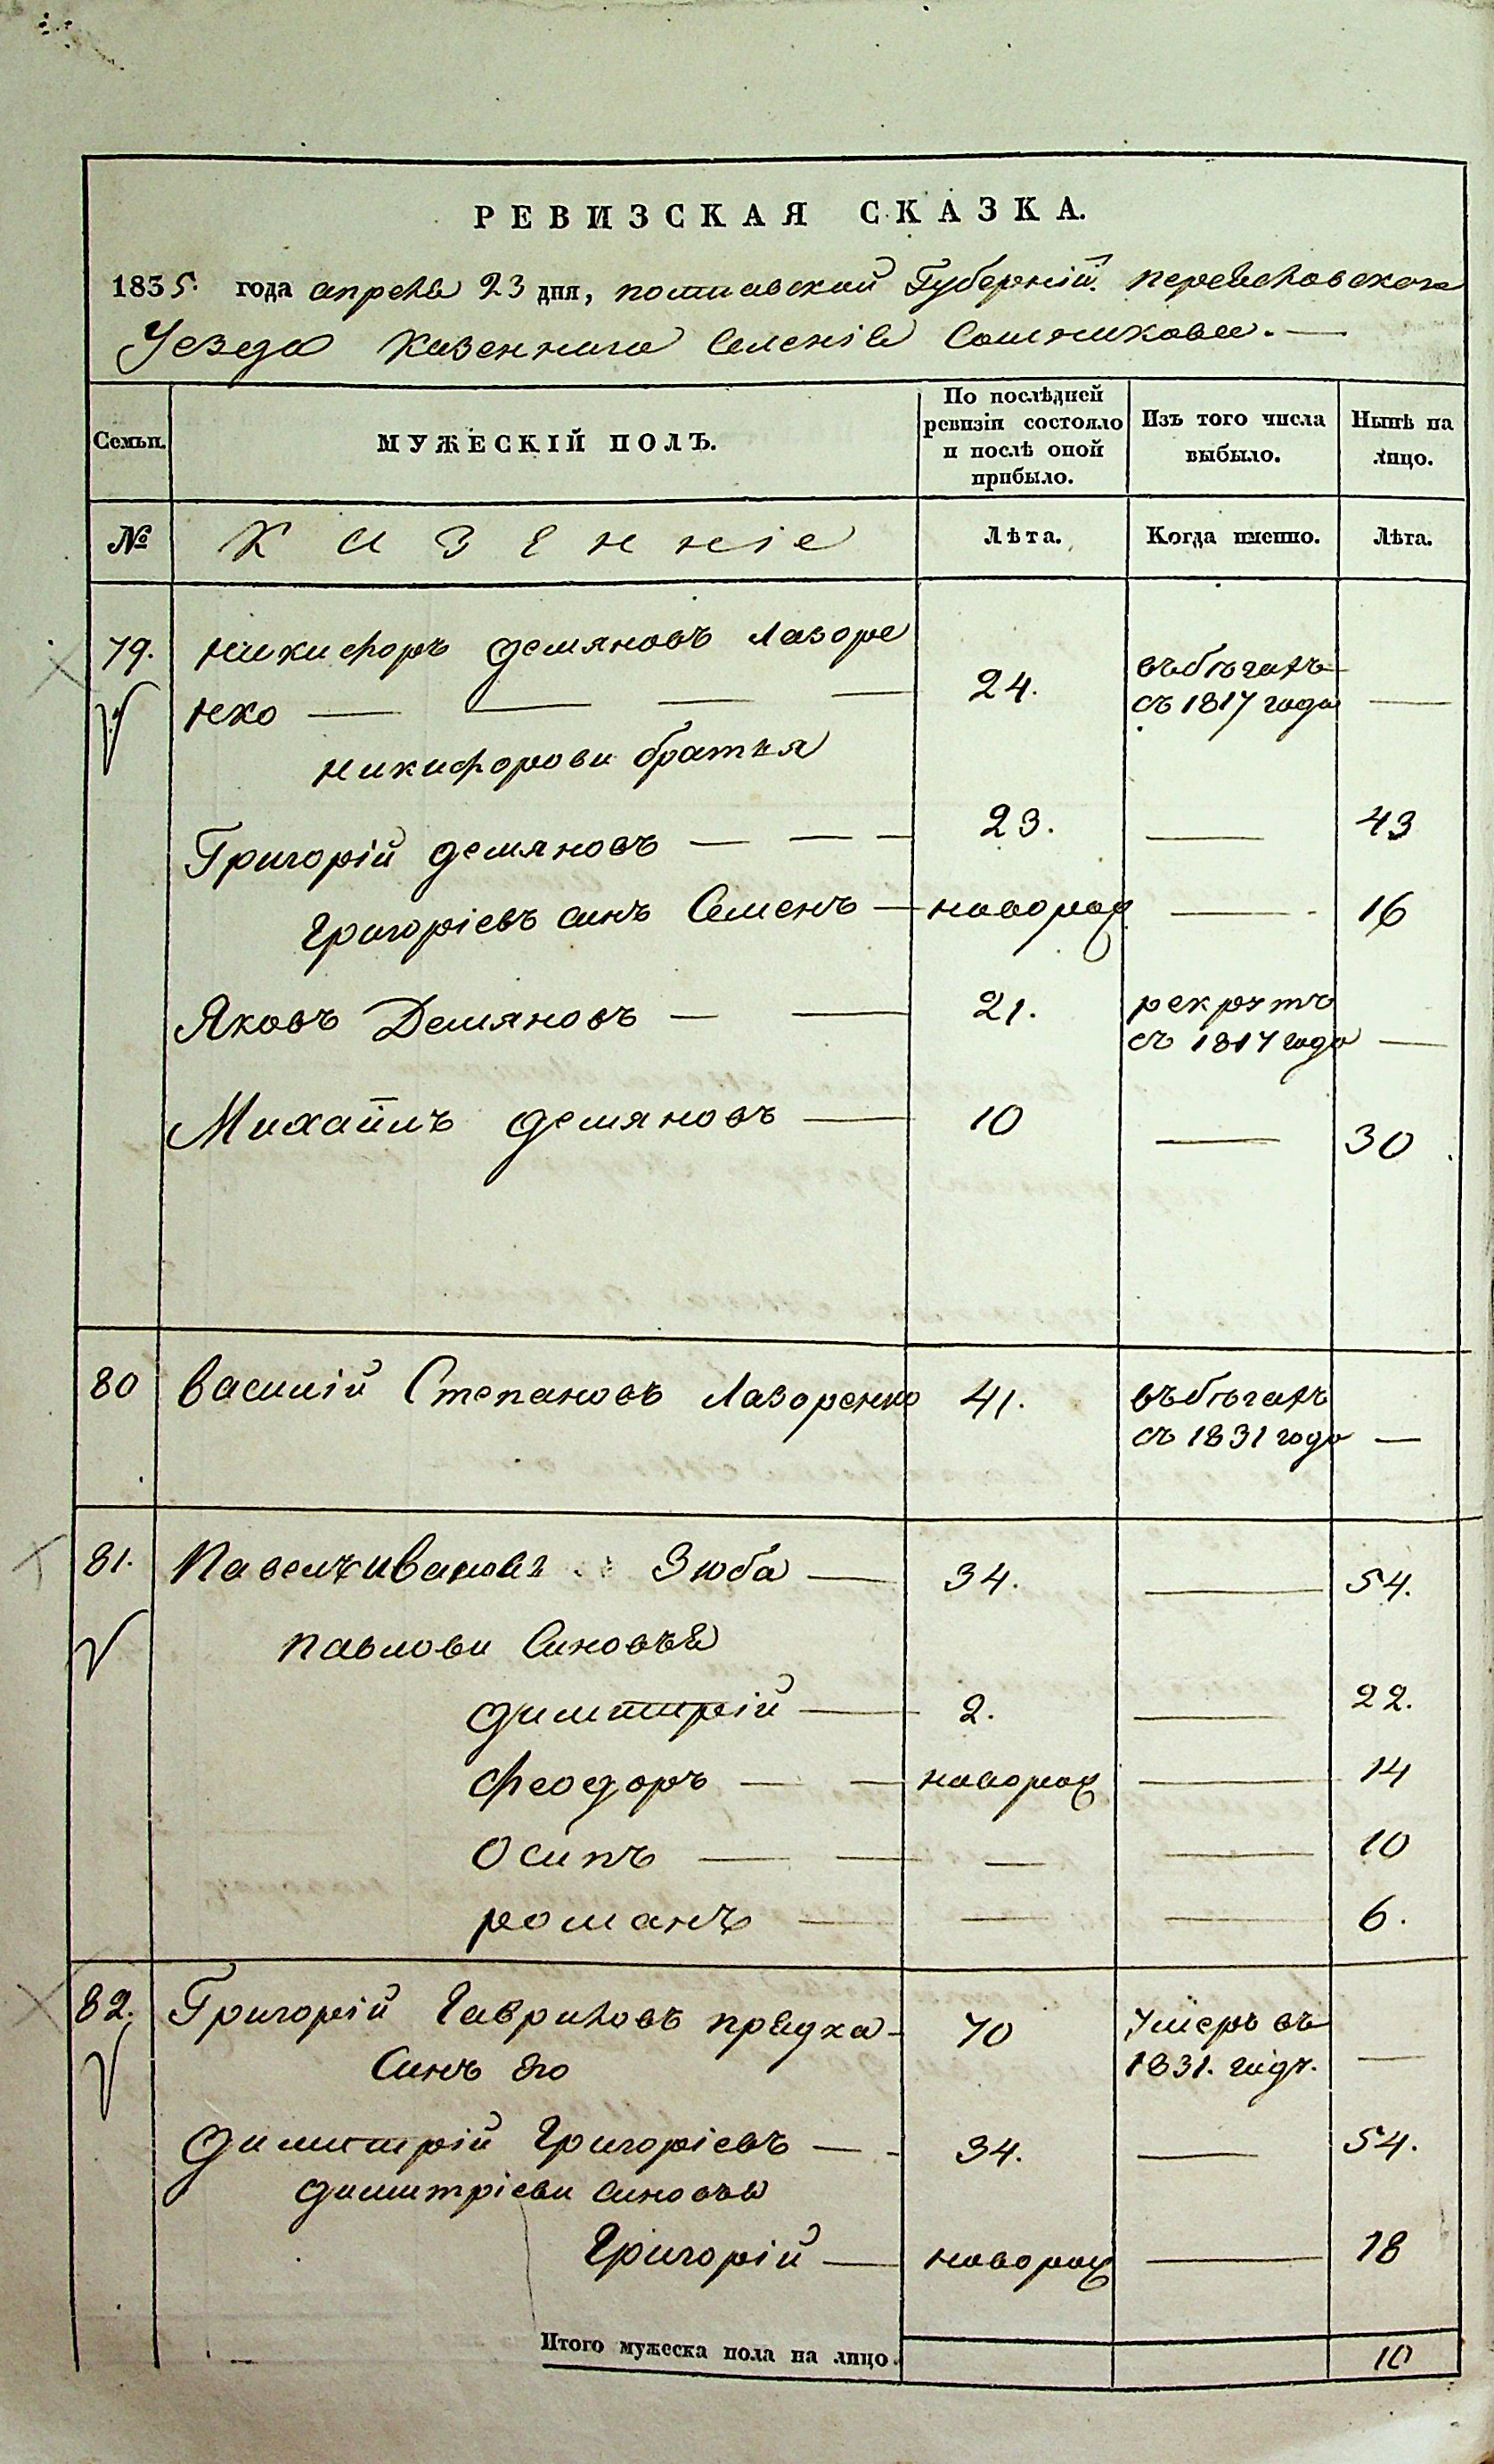 РЕВИЗСКАЯ СКАЗКА.
1835. года апреля 23 дня, полтавской Губерніи переяславского
Уезда Казенного Селенія Сошникова. —
Семьи.
МУЖЕСКІЙ ПОЛЪ.
По послѣдней ревизіи состояло и послѣ оной прибыло.
Изъ того числа выбыло.
Нынѣ на лицо.
№ Казенніе Лѣта. Когда именно. Лѣта.
79. Никифоръ демяновъ Лазоре
нко — — — — 24. въ бѣгахъ съ 1817 года —
никифорови братья
Григорій демяновъ — — — 23. — 43
Григоріевъ синъ Семенъ — новорож — 16
Яковъ Демяновъ — — 21. рекрутъ съ 1817 года —
Михаилъ демяновъ — 10 — 30
80 василій Степановъ Лазоренко 41. въ бѣгахъ съ 1831 года —
81. Павелъ ивановъ Зюба — 34. — 54.
павлови Синовья
димитрій — 2. — 22.
феодоръ — — новорож — 14
Осипъ — — — — 10
романъ — — — 6.
82. Григорій Гавриловъ прядка — 70 Умеръ въ 1831. годѣ. —
Синъ Его
димитрій Григоріевъ — — 34. — 54.
димитріеви синовья
Григорій — новорож — 18
Итого мужеска пола на лицо. 10